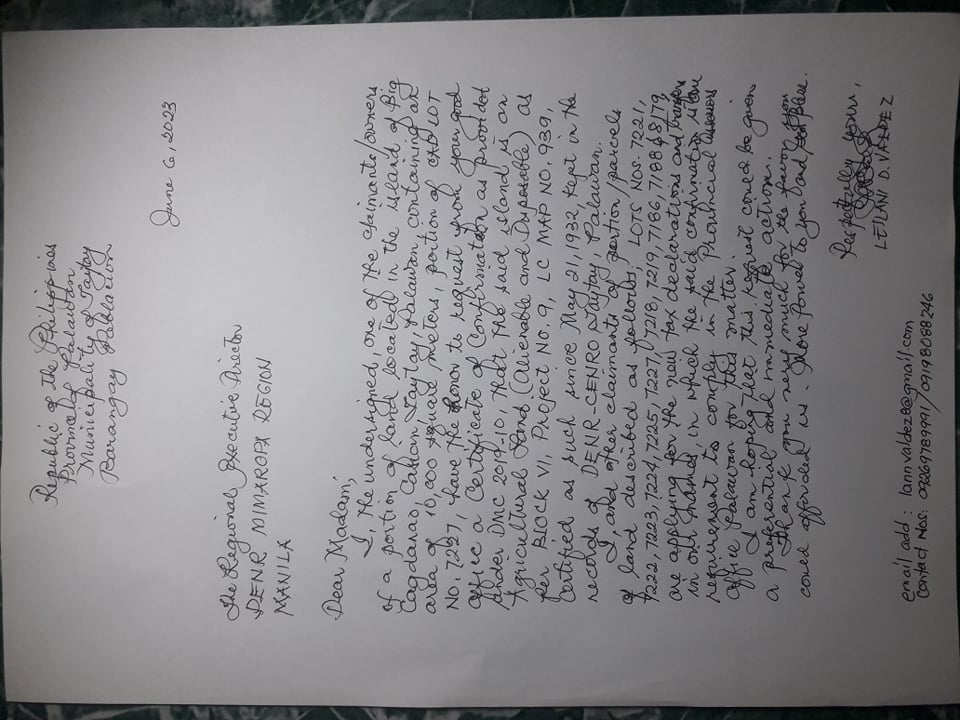 Republic of the Philippines
Province of Palawan
Municipality of Taytay
Barangay Poblacion
June 6, 2023
The Regional Executive Director
DENR MIMAROPA REGION
MANILA
Dear Madam;
I, the undersigned, one of the claimants/owners
of a portion of land located in the island of Big
Cagdanao, Taytay, Palawan containing an
area of 10,000 square meters, portion of LOT
NO. 7227, have the honor to request from your good
office a Certificate of Confirmation as provided
under DMC 2019-10, that the said island is an
Agricultural Land (Alienable and Disposable) as
per BLOCK VI, Project No. 9, LC MAP NO. 939,
Certified as such since May 21, 1932, kept in the
records of DENR-CENRO Taytay, Palawan.
I and other claimants of portion/parcels
of land described as follows, LOTS NOS. 7221,
7222, 7223, 7224, 7225, 7227, 7218, 7219, 7186, 7188 & 8179,
are applying for the new tax declarations and transfer
in our names in which the said confirmation is one
requirement to comply in the Provincial Assessors
Office Palawan for this matter.
I am hoping that this request could be given
a preferential and immediate action.
Thank you very much for the favor you
could afforded us. More power to you and God Bless.
Respectfully yours,
LEILANI D. VALDEZ
email add: lannvaldez8@gmail.com
Contact Nos: 09269789991/09198088246